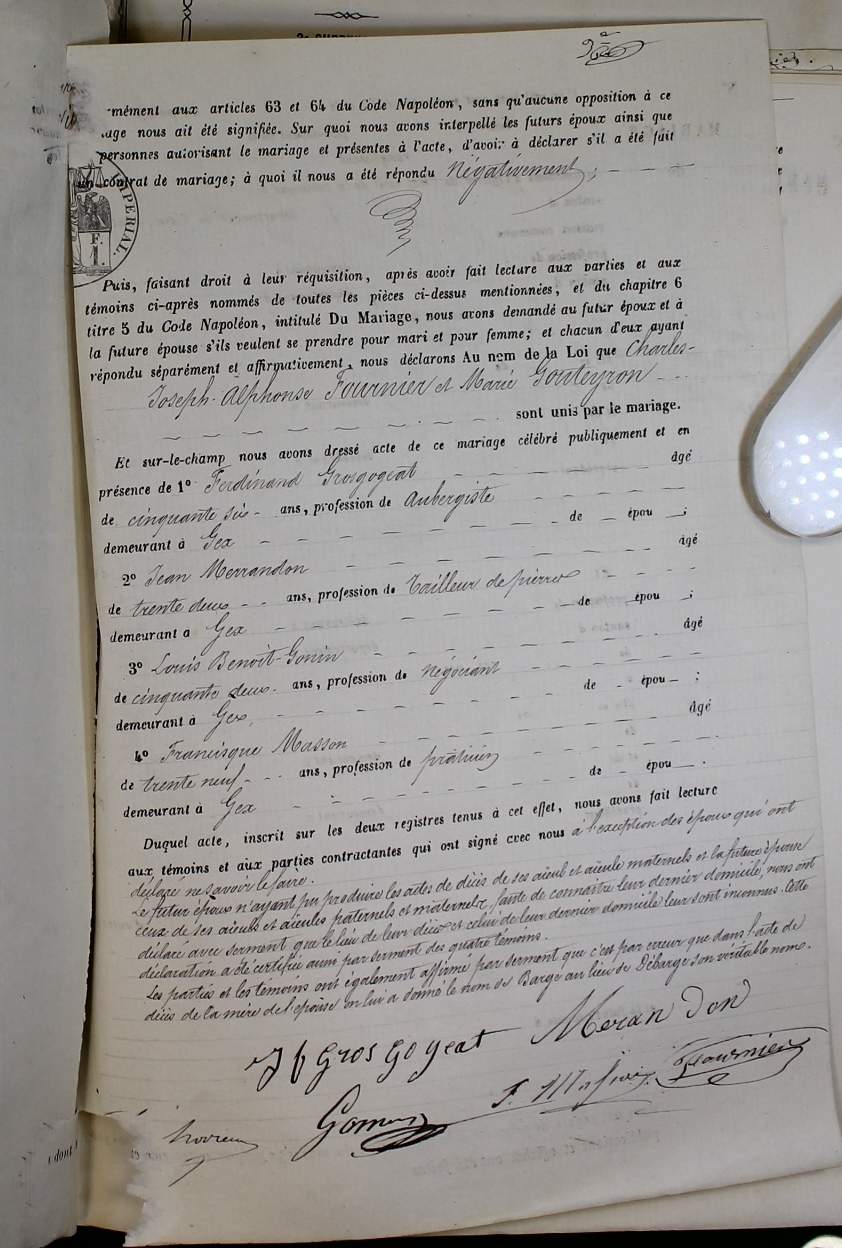 -mément aux articles 63 et 64 du Code Napoléon, sans qu'aucune opposition à ce
-iage nous ait été signifiée. Sur quoi nous avons interpellé les futurs époux ainsi que
personnes autorisant le mariage et présentes à l'acte, d'avoir à déclarer s'il a été fait
un contrat de mariage; à quoi il nous a été répondu Négativement;
IMPERIAL.
F.
1.
Puis, faisant droit à leur réquisition, après avoir fait lecture aux parties et aux
témoins ci-après nommés de toutes les pièces ci-dessus mentionnées, et du chapitre 6
titre 5 du Code Napoléon, intitulé Du Mariage, nous avons demandé au futur époux et à
la future épouse s'ils veulent se prendre pour mari et pour femme; et chacun d'eux ayant
répondu séparément et affirmativement, nous déclarons Au nom de la Loi que Charles-
Joseph-Alphonse Fournier et Marie Gouteyron
sont unis par le mariage.
Et sur-le-champ nous avons dressé acte de ce mariage célébré publiquement et en
présence de 1° Ferdinand Grosgogeat âgé
de cinquante six ans, profession de Aubergiste
demeurant à Gex de épou ;
2° Jean Merrandon âgé
de trente deux ans, profession de Tailleur de pierres
demeurant à Gex de épou ;
3° Louis Benoit-Gonin âgé
de cinquante deux ans, profession de négociant
demeurant à Gex, de épou ;
4° Francisque Masson âgé
de trente neuf ans, profession de praticien
demeurant à Gex de épou .
Duquel acte, inscrit sur les deux registres tenus à cet effet, nous avons fait lecture
aux témoins et aux parties contractantes qui ont signé avec nous à l'exception des époux qui ont
déclaré ne savoir le faire.
Le futur époux n'ayant pu produire les actes de décès de ses aïeul et aïeule maternels et la future épouse
ceux de ses aïeuls et aïeules paternels et maternels, faute de connaître leur dernier domicile, nous ont
déclaré avec serment que le lieu de leur décès et celui de leur dernier domicile leur sont inconnus. Cette
déclaration a été certifiée aussi par serment des quatre témoins.
Les parties et les témoins ont également affirmé par serment que c'est par erreur que dans l'acte de
décès de la mère de l'épouse on lui a donné le nom de Barge au lieu de Débarge son véritable nom.
Grosgogeat Meran Don
Gonin F. Masson Fournier